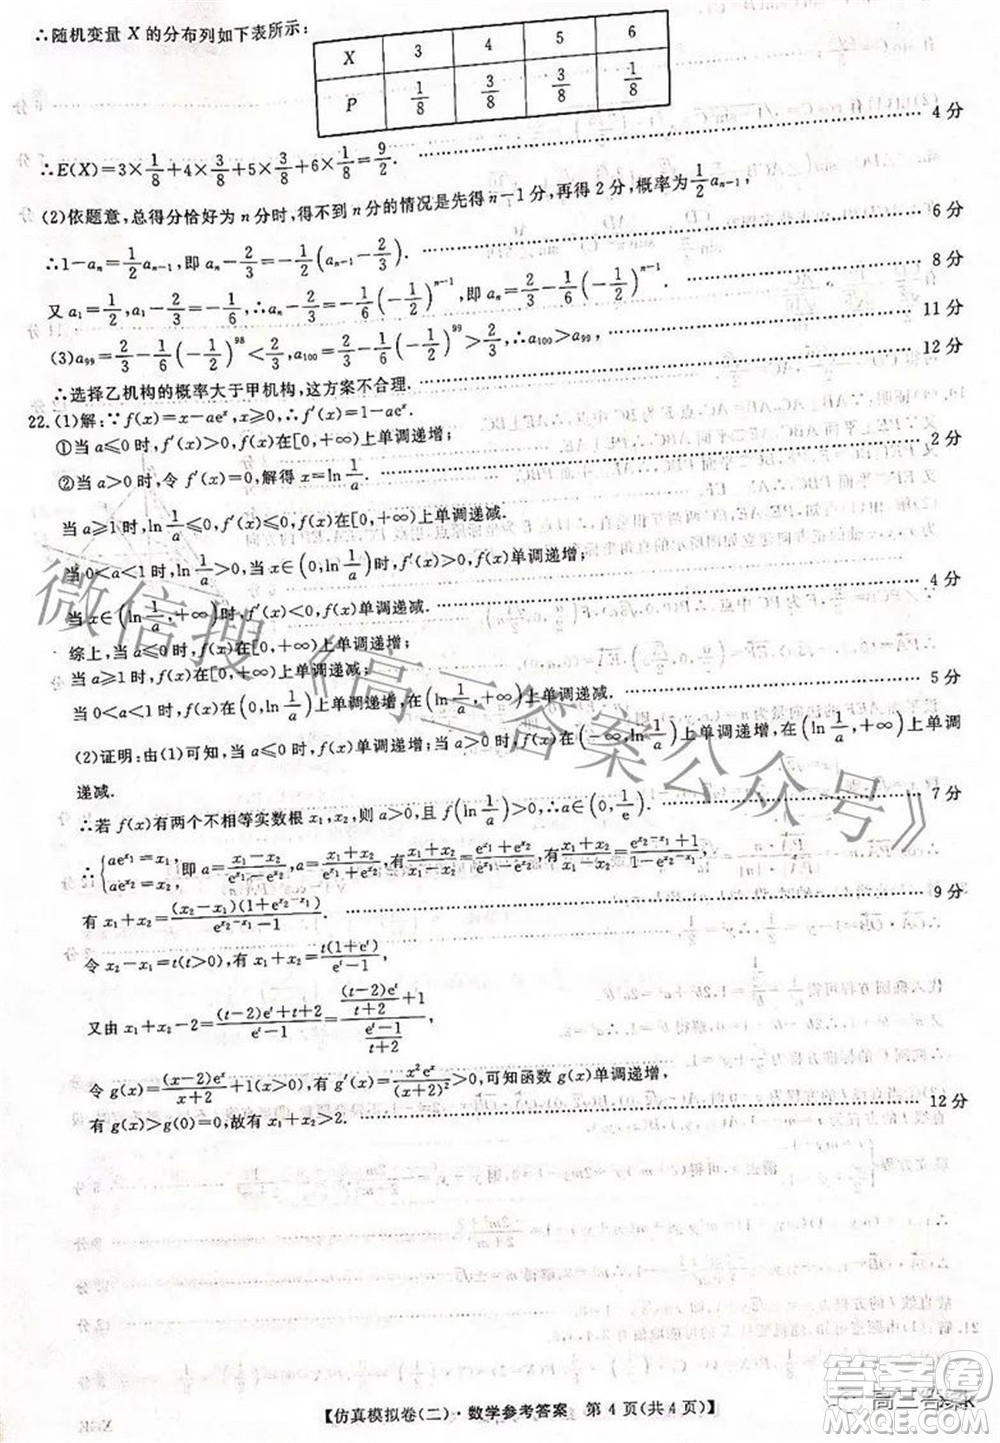 ∴随机变量 X 的分布列如下表所示:
X 3 4 5 6
P 1/8 3/8 3/8 1/8
∴E(X)=3×1/8+4×3/8+5×3/8+6×1/8=9/2. 4 分
(2)依题意,总得分恰好为 n 分时,得不到 n 分的情况是先得 n-1 分,再得 2 分,概率为 1/2 a_{n-1},
∴1-a_n=1/2 a_{n-1},即 a_n-2/3=-1/2(a_{n-1}-2/3). 6 分
又 a_1=1/2,a_1-2/3=-1/6,∴a_n-2/3=-1/6(-1/2)^{n-1},即 a_n=2/3-1/6(-1/2)^{n-1}. 8 分
(3)a_99=2/3-1/6(-1/2)^98<2/3,a_100=2/3-1/6(-1/2)^99>2/3,∴a_100>a_99, 11 分
∴选择乙机构的概率大于甲机构,这方案不合理. 12 分
22.(1)解:∵f(x)=x-ae^x,x≥0,∴f′(x)=1-ae^x.
①当 a≤0 时,f′(x)>0,f(x)在[0,+∞)上单调递增; 2 分
②当 a>0 时,令 f′(x)=0,解得 x=ln 1/a.
当 a≥1 时,ln 1/a≤0,f′(x)<0,f(x)在[0,+∞)上单调递减.
当 0<a<1 时,ln 1/a>0,当 x∈(0,ln 1/a)时,f′(x)>0,f(x)单调递增;
当 x∈(ln 1/a,+∞)时,f′(x)<0,f(x)单调递减. 4 分
综上,当 a≤0 时,f(x)在[0,+∞)上单调递增;
当 a≥1 时,f(x)在[0,+∞)上单调递减; 5 分
当 0<a<1 时,f(x)在(0,ln 1/a)上单调递增,在(ln 1/a,+∞)上单调递减.
(2)证明:由(1)可知,当 a≤0 时,f(x)单调递增;当 a>0 时,f(x)在(-∞,ln 1/a)上单调递增,在(ln 1/a,+∞)上单调
递减. 7 分
∴若 f(x)有两个不相等实数根 x_1,x_2,则 a>0,且 f(ln 1/a)>0,∴a∈(0,1/e).
∴{ae^{x_1}=x_1, ae^{x_2}=x_2,即 a=(x_1-x_2)/(e^{x_1}-e^{x_2}),a=(x_1+x_2)/(e^{x_1}+e^{x_2}),有(x_1+x_2)/(x_1-x_2)=(e^{x_1}+e^{x_2})/(e^{x_1}-e^{x_2}),有(x_1+x_2)/(x_1-x_2)=(e^{x_2-x_1}+1)/(1-e^{x_2-x_1}),
有 x_1+x_2=(x_2-x_1)(1+e^{x_2-x_1})/(e^{x_2-x_1}-1). 9 分
令 x_2-x_1=t(t>0),有 x_1+x_2=t(1+e^t)/(e^t-1),
又由 x_1+x_2-2=((t-2)e^t+t+2)/(e^t-1)=((t-2)e^t/(t+2)+1)/((e^t-1)/(t+2)),
令 g(x)=(x-2)e^x/(x+2)+1(x>0),有 g′(x)=x²e^x/(x+2)²>0,可知函数 g(x)单调递增,
有 g(x)>g(0)=0,故有 x_1+x_2>2. 12 分
【仿真模拟卷(二)·数学参考答案 第 4 页(共 4 页)】
微信搜《高三答案公众号》
答案圈
高三答案